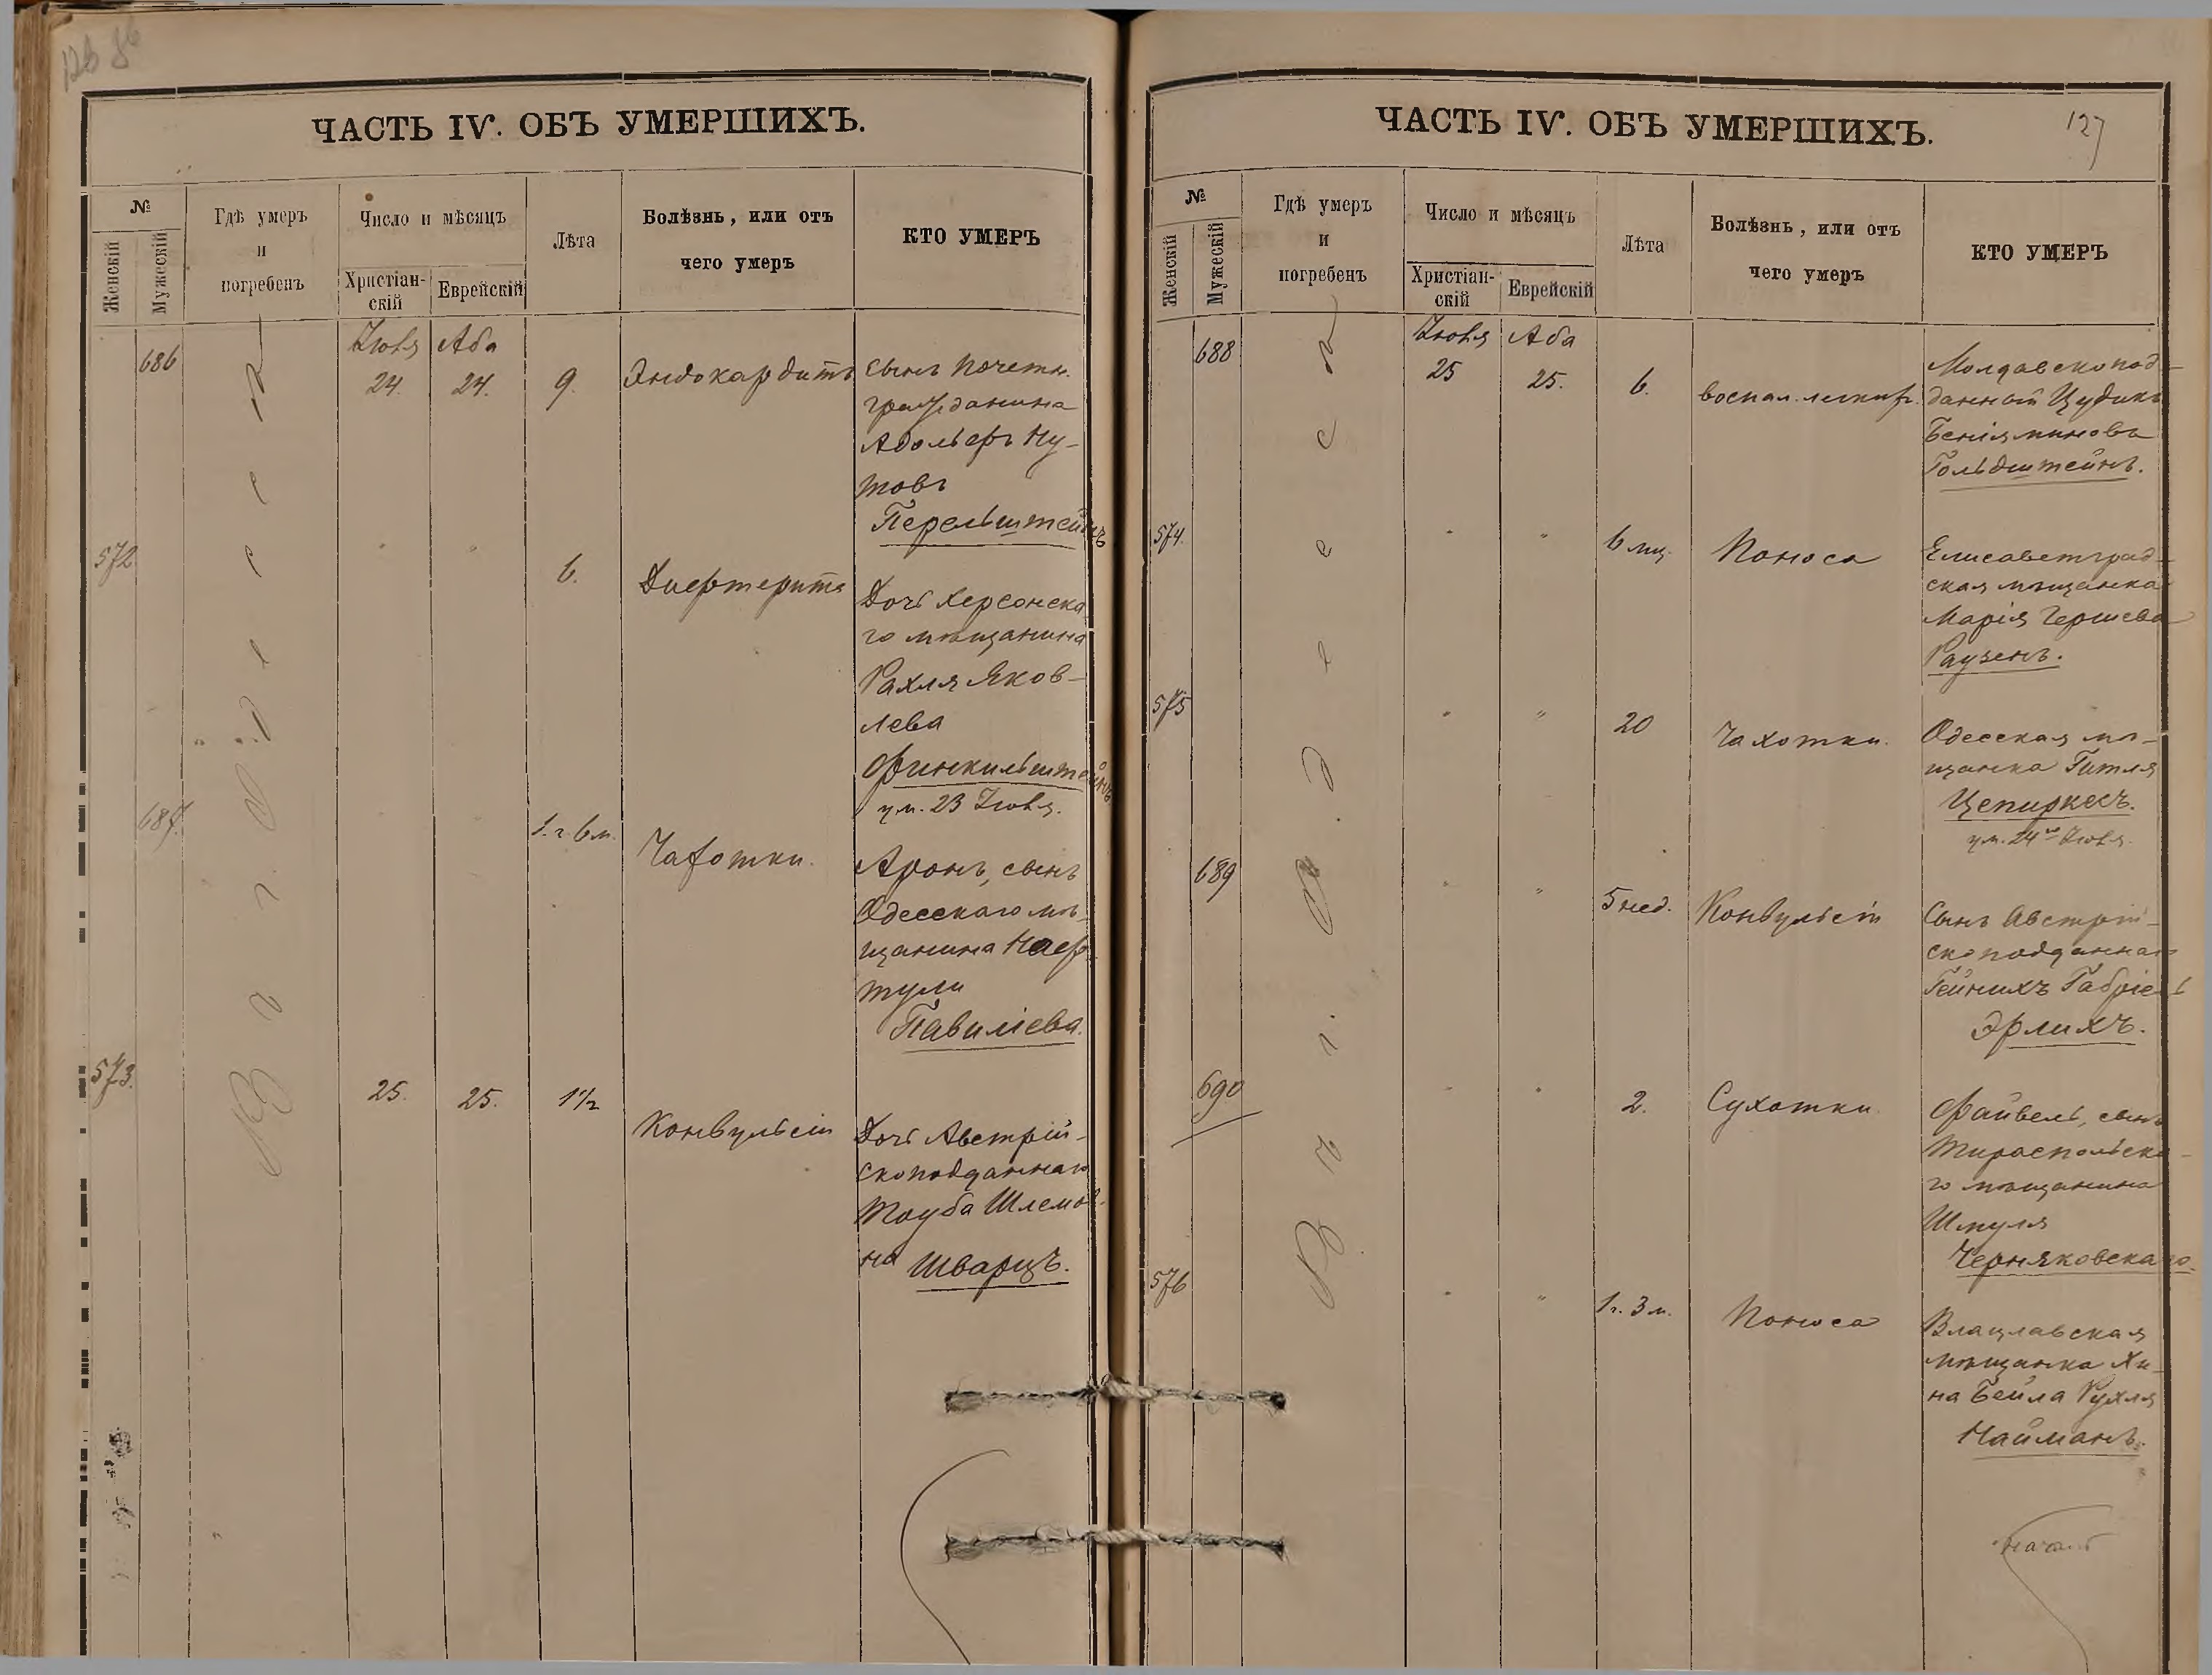 126 86
ЧАСТЬ IV. ОБЪ УМЕРШИХЪ.
№
Женскій
Мужескій
Гдѣ умеръ
и
погребенъ
Число и мѣсяцъ
Христіан-
скій
Еврейскій
Лѣта
Болѣзнь, или отъ
чего умеръ
КТО УМЕРЪ
Въ г. Одессѣ
686
Іюля
24
Аба
24.
9.
Эндокардитъ
сынъ почетн.
гражданина
Адольфъ Ну-
товъ
Перельштейнъ
572
"
"
6.
Дифтерита
Дочь Херсонска
го мѣщанина
Рахля Яков-
лева
Финкильштейнъ
ум. 23 Іюля.
687.
1.г. 6 м.
Чахотки.
Аронъ, сынъ
Одесскаго мѣ-
щанина Наф-
тули
Павиліева.
573.
25.
25.
1 1/2
Конвульсіи
Дочь Австрій-
скоподданнаго
Тауба Шлемов-
на Шварцъ.
127
ЧАСТЬ IV. ОБЪ УМЕРШИХЪ.
№
Женскій
Мужескій
Гдѣ умеръ
и
погребенъ
Число и мѣсяцъ
Христіан-
скій
Еврейскій
Лѣта
Болѣзнь, или отъ
чего умеръ
КТО УМЕРЪ
Въ г. Одессѣ
688
Іюля
25
Аба
25.
6.
воспал. легких.
Молдавскопод-
данный Цудикъ
Беніяминовъ
Гольдштейнъ.
574.
"
"
6 мц.
Поноса
Елисаветград-
ская мѣщанка
Марія Гершева
Раузенъ.
575
"
"
20
Чахотки.
Одесская мѣ-
щанка Гитля
Цепиркесъ.
ум. 24го Іюля.
689
"
"
5 нед.
Конвульсіи
Сынъ Австрій-
скоподданнаго
Гейнихъ Габріель
Эрлихъ.
690
"
"
2.
Сухотки
Файвель, сынъ
Тираспольска-
го мѣщанина
Шмуля
Черняковскаго.
576
"
"
1 г. 3 м.
Поноса
Влацлавская
мѣщанка Хи-
на Бейла Рухля
Найманъ.